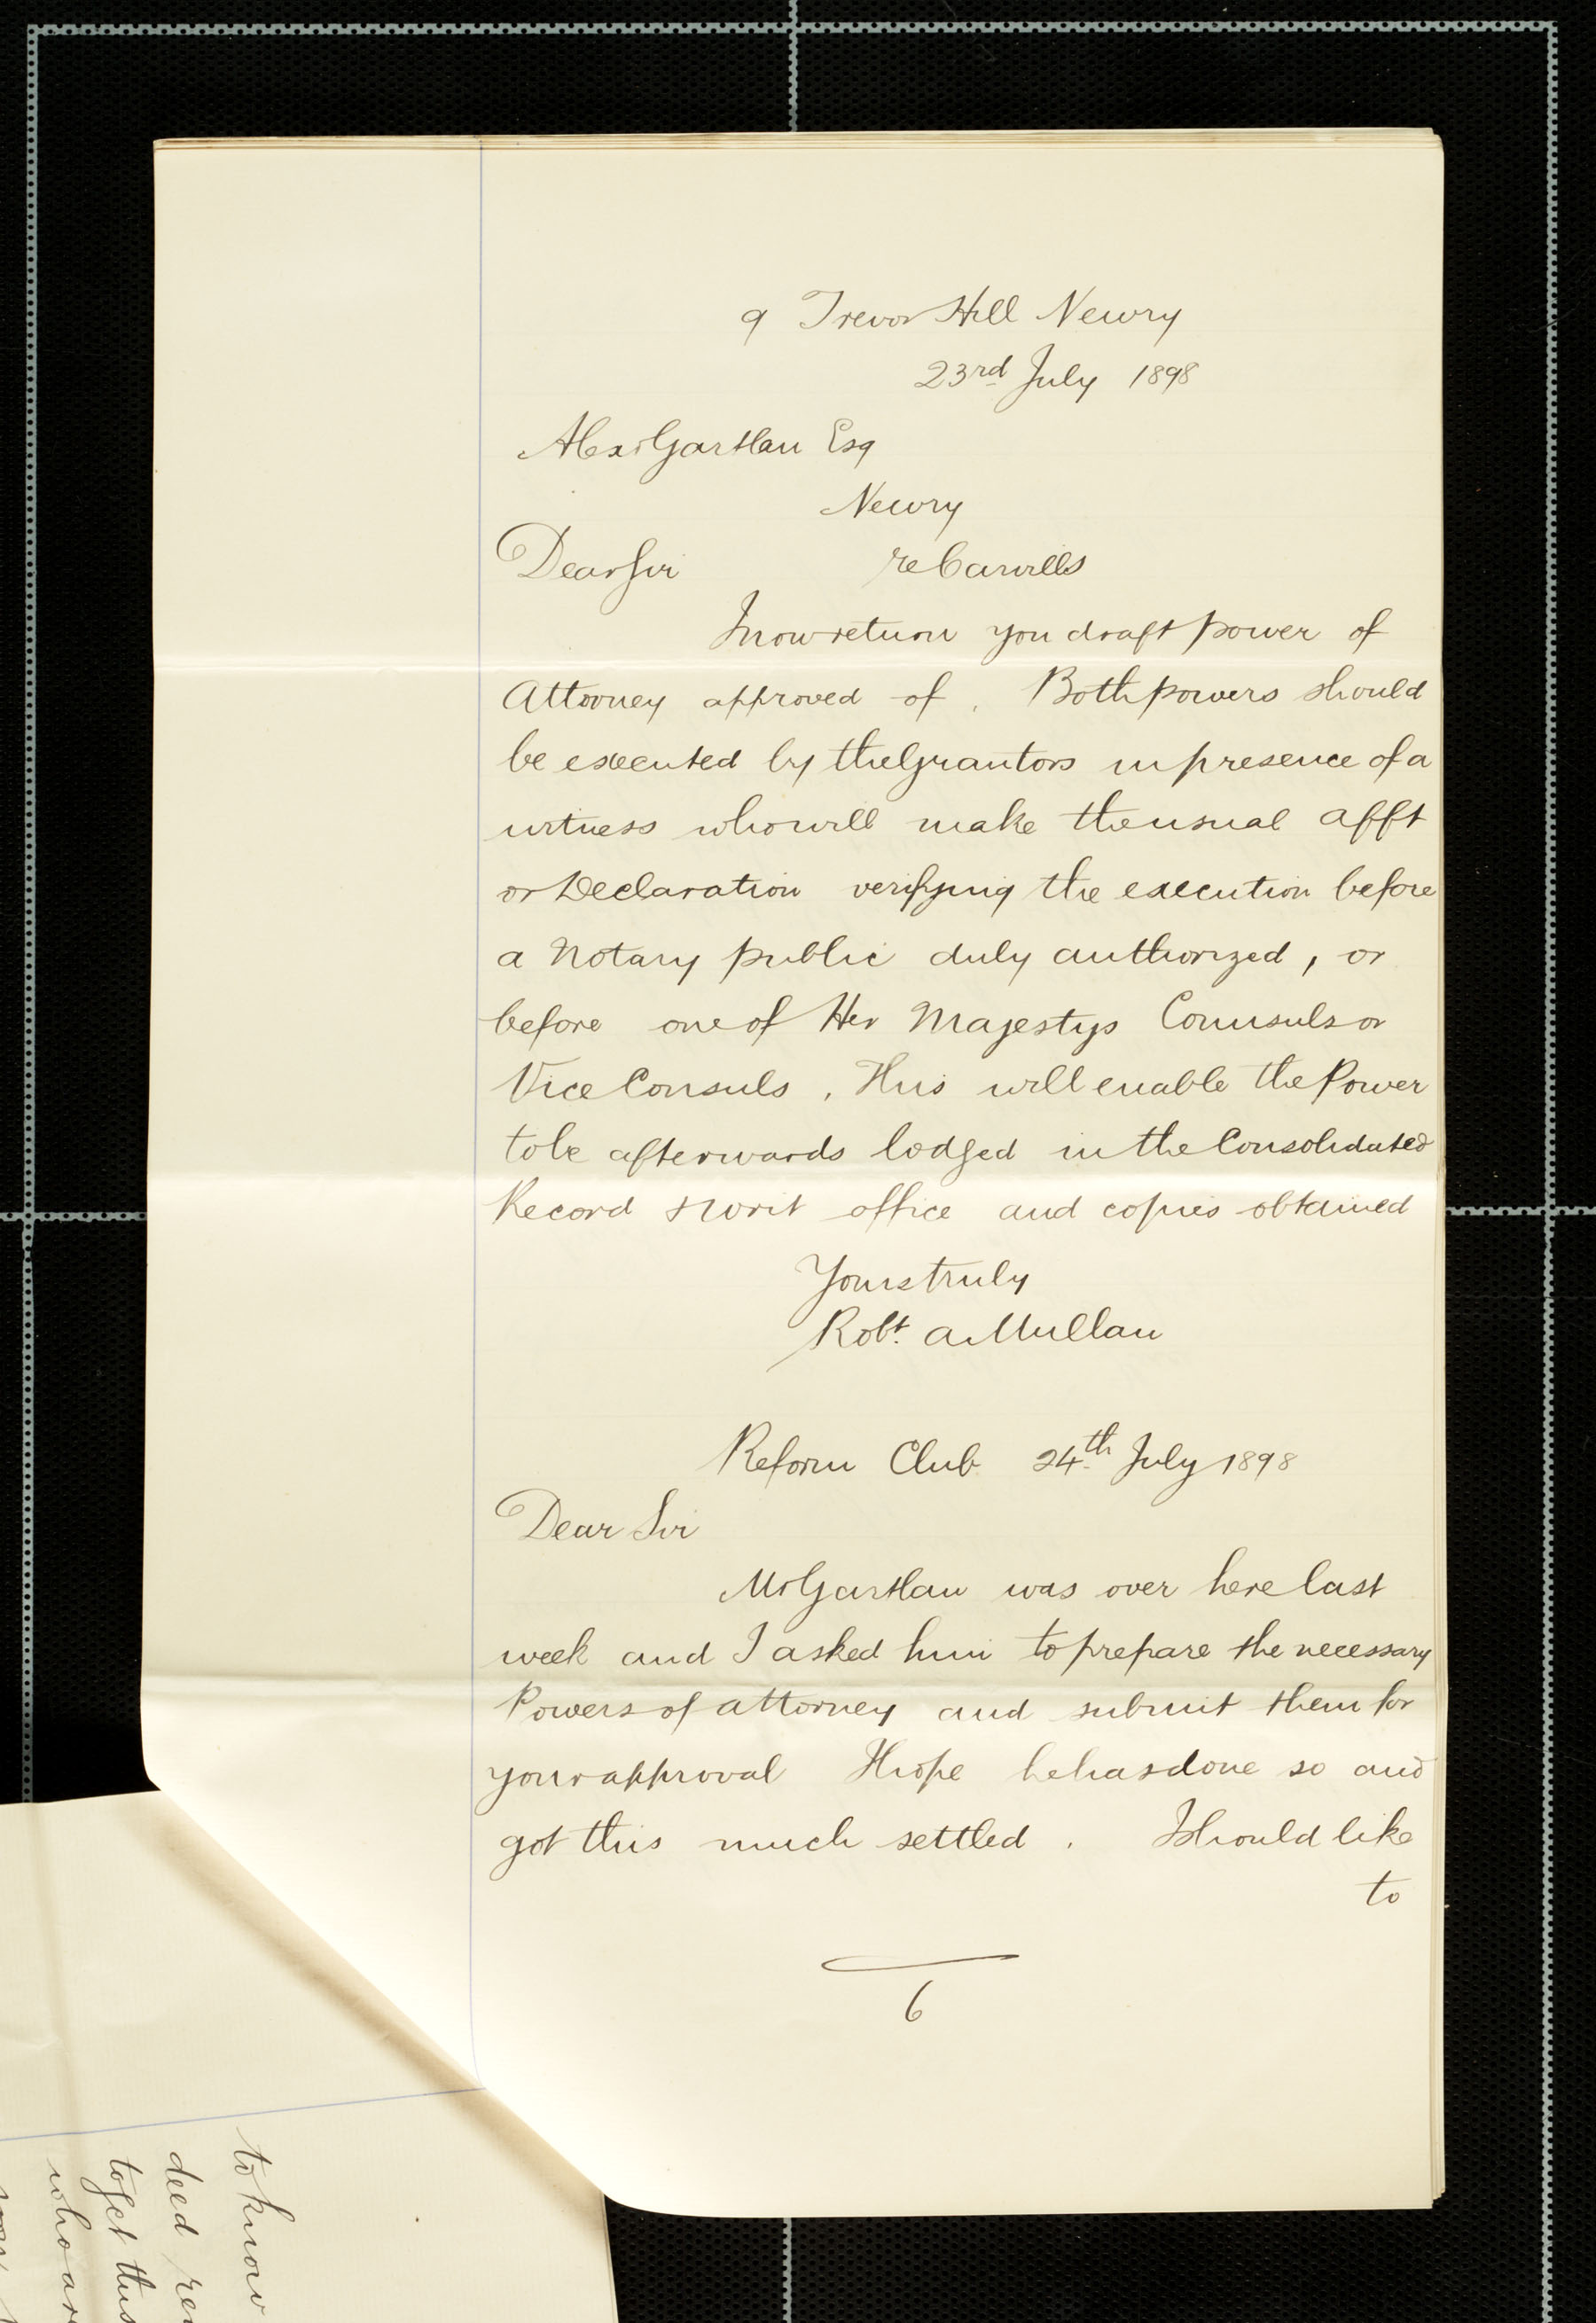 9 Trevor Hill Newry
23rd July 1898
Alexr Gartlan Esq
Newry
Dear Sir re Carvills
I now return you draft power of
Attorney approved of . Both powers should
be executed by the Grantors in presence of a
witness who will make the usual afft
or Declaration verifying the execution before
a Notary public duly authorized , or
before one of Her Majestys Counsuls or
Vice Consuls . This will enable the Power
to be afterwards lodged in the Consolidated
Record & Writ office and copies obtained
Yours truly
Robt. A Mullan
Reform Club 24th July 1898
Dear Sir
Mr Gartlan was over here last
week and I asked him to prepare the necessary
Powers of attorney and submit them for
your approval I hope he has done so and
got this much settled . I should like
to
6
to know
deed
to get this
who